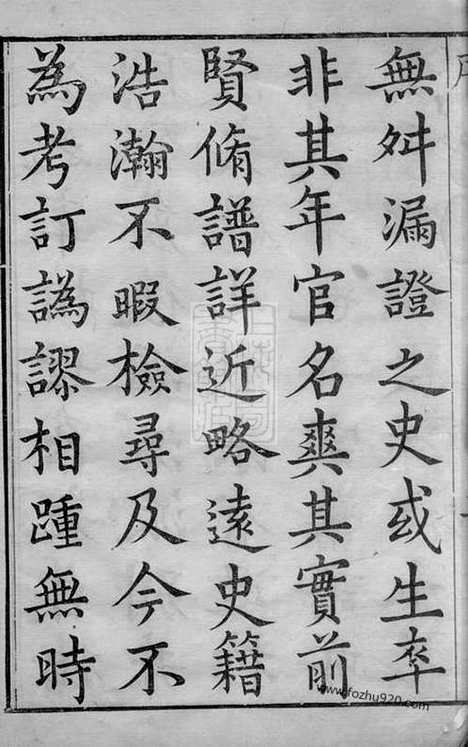 無舛漏證之史或生卒
非其年官名爽其實前
賢脩譜詳近略遠史籍
浩瀚不暇檢尋及今不
為考訂譌謬相踵無時
www.fozhu920.com